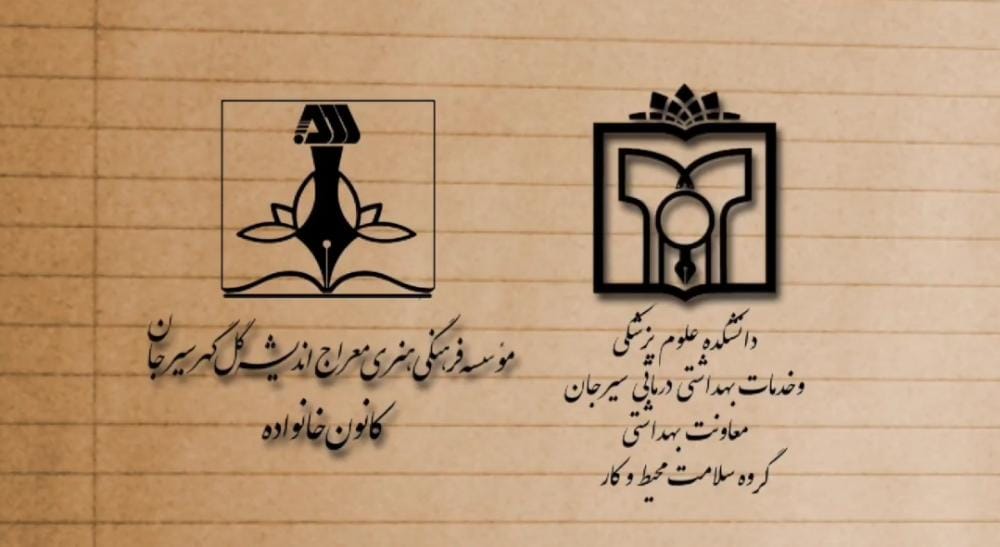 دانشکده علوم پزشکی
وخدمات بهداشتی درمانی سیرجان
معاونت بهداشتی
گروه سلامت محیط و کار
مؤسسه فرهنگی هنری معراج اندیشه گل گهر سیرجان
کانون خانواده